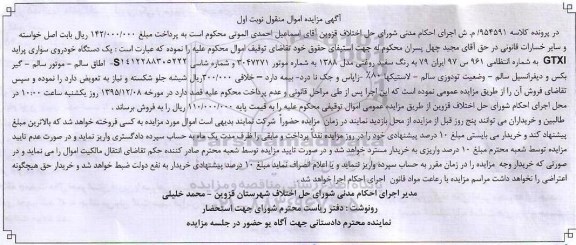 آگهی مزایده اموال منقول نوبت اول
در پرونده کلاسه ۹۵۴۵۹۱/ م. ش اجرای احکام مدنی شورای حل اختلاف قزوین آقای اسماعیل احمدی المونی محکوم است به پرداخت مبلغ ۱۴۲/۰۰۰/۰۰۰ ریال بابت اصل خواسته
و سایر خسارات قانونی در حق آقای مجید چهل پسران محکوم له جهت استیفای حقوق خود تقاضای توقیف اموال محکوم علیه را نموده که عبارت است : یک دستگاه خودروی سواری پراید
GTXI به شماره انتظامی ۹۶۱ س ۹۷ ایران ۷۹ به رنگ سفید روغنی مدل ۱۳۸۸ به شماره موتور ۳۰۴۷۲۷۱ و شماره شاسی S۱۴۱۲۲۸۸۳۰۵۲۲۲- اطاق سالم – موتور سالم – گیر
بکس و دیفرانسیل سالم – وضعیت تودوزی سالم – لاستیکها ۸۰٪ -زاپاس و جک نا درد- بیمه دارد – خلافی ۳۰۰/۰۰۰ریال شیشه جلو شکسته و نیاز به تعویض دارد را نموده و سپس
تقاضای فروش آن را از طریق مزایده عمومی نموده است که این اجرا پس از طی مراحل قانونی و عدم پرداخت محکوم علیه قصد دارد در مورخه ۱۳۹۵/۱۲/۰۸ روز یکشنبه ساعت ۱۰:۰۰ در
محل اجرای احکام شورای حل اختلاف قزوین از طریق مزایده عمومی اموال توقیفی محکوم علیه را به قیمت پایه ۱۱۰/۰۰۰/۰۰۰ ریال را به فروش برساند .
طالبین و خریداران می توانند پنج روز قبل از مزایده از محل بازدید نمایند در زمان مزایده حضوراً شرکت نمایند بدیهی است اموال مورد مزایده به کسی فروخته خواهد شد که بالاترین مبلغ
پیشنهاد کند و خریدار می بایستی مبلغ ۱۰ درصد پیشنهادی خود را در روز مزایده نقداً پرداخت و مابقی را ظرف مدت یک ماه به حساب سپرده دادگستری واریز نماید و در صورت عدم تایید
مزایده توسط شعبه محترم مبلغ ۱۰ درصد واریزی به خریدار مسترد خواهد شد و درصورت تایید مزایده توسط شعبه محترم صادر کننده حکم تقاضای انتقال مالکیت اموال را می نماید و در
صورتی که خریدار وجه مزایده را در زمان مقرر به حساب سپرده واریز ننماید و یا اعلام انصراف نماید مبلغ ۱۰ درصد پیشنهادی خریدار به نفع دولت ضبط خواهد شد و خریدار حق هیچگونه
اعتراضی را نخواهد داشت مراسم مزایده با رعاعت مواد قانون اجرای احکام اجرا خواهد شد .
مدیر اجرای احکام مدنی شورای حل اختلاف شهرستان قزوین – محمد خلیلی
رونوشت : دفتر ریاست محترم شورای جهت استحضار
نماینده محترم دادستانی جهت آگاه یو حضور در جلسه مزایده